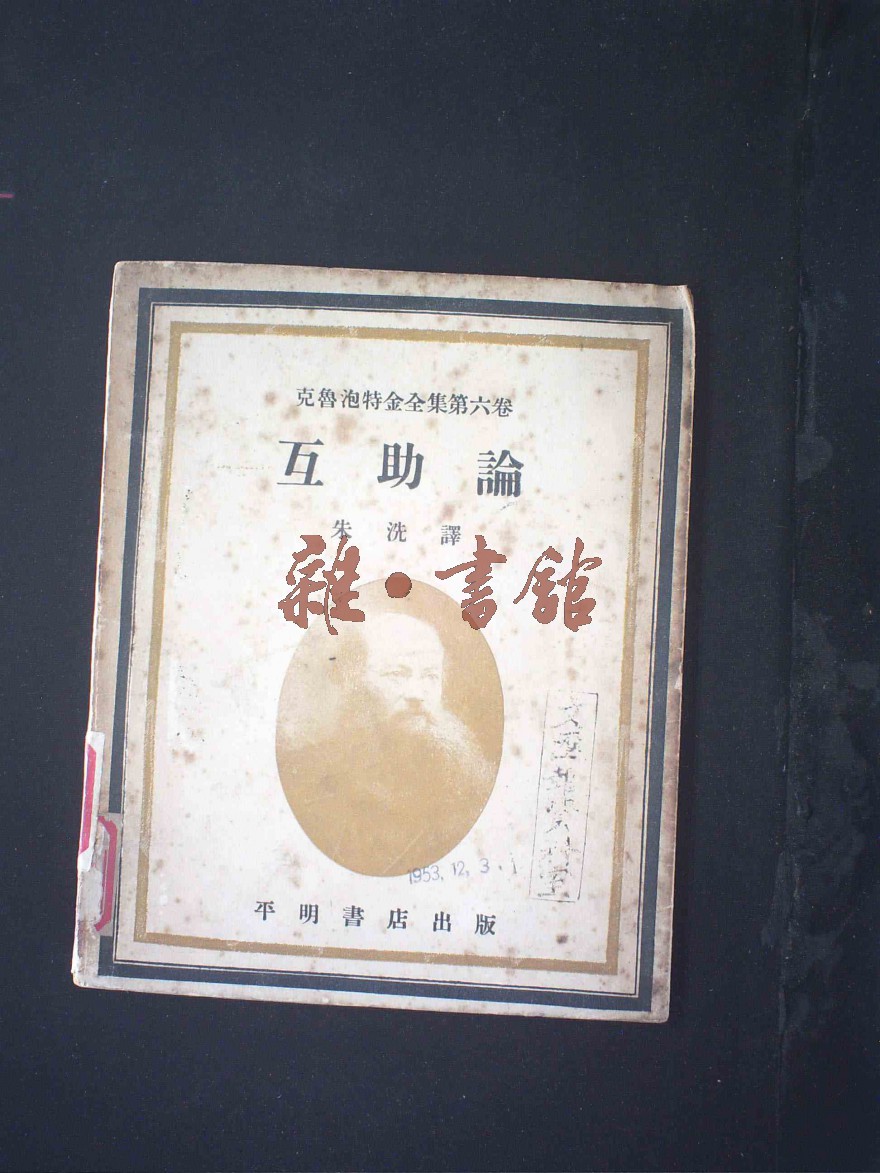 克魯泡特金全集第六卷
互助論
朱洗譯
雜·書館
1953.12.3.
平明書店出版